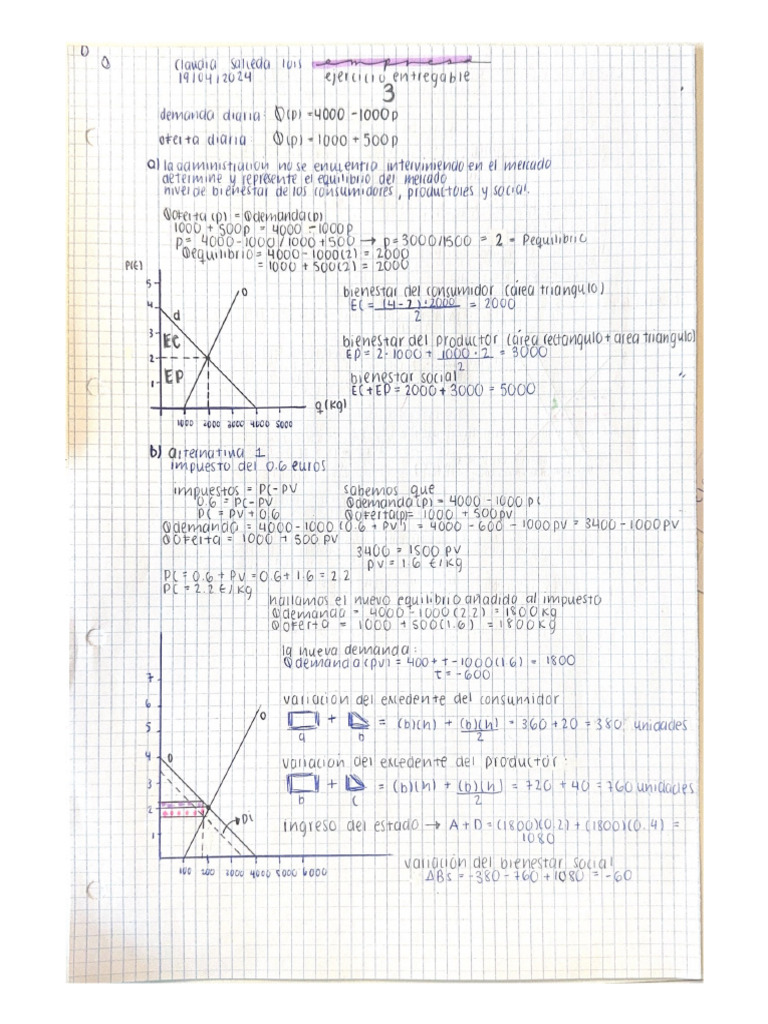 Claudia Salceda Luis empresa
19/04/2024 ejercicio entregable
3
demanda diaria: Q(p) = 4000 - 1000p
oferta diaria: Q(p) = 1000 + 500p
a) la administración no se encuentra interviniendo en el mercado
determine y represente el equilibrio del mercado
nivel de bienestar de los consumidores, productores y social.
Qoferta(p) = Qdemanda(p)
1000 + 500p = 4000 - 1000p
p = 4000 - 1000 / 1000 + 500 → p = 3000/1500 = 2 = Pequilibrio
Qequilibrio = 4000 - 1000(2) = 2000
= 1000 + 500(2) = 2000
P(€)
5
4
3
2
1
d
O
EC
EP
1000 2000 3000 4000 5000
q(kg)
bienestar del consumidor (área triangulo)
EC = (4-2)·2000 / 2 = 2000
bienestar del productor (área rectangulo + area triangulo)
EP = 2·1000 + 1000·2 / 2 = 3000
bienestar social
EC+EP = 2000 + 3000 = 5000
b) alternativa 1
impuesto del 0.6 euros
impuestos = PC-PV
0.6 = PC-PV
PC = PV + 0.6
sabemos que
Qdemanda(p) = 4000 - 1000 PC
Qoferta(p) = 1000 + 500PV
Qdemanda = 4000 - 1000 (0.6 + PV) = 4000 - 600 - 1000PV = 3400 - 1000PV
Qoferta = 1000 + 500 PV
3400 = 1500 PV
PV = 1.6 €/kg
PC = 0.6 + PV = 0.6 + 1.6 = 2.2
PC = 2.2 €/kg
hallamos el nuevo equilibrio añadido al impuesto
Qdemanda = 4000 - 1000(2.2) = 1800 kg
Qoferta = 1000 + 500(1.6) = 1800kg
la nueva demanda:
Qdemanda(pv) = 400 + T - 1000(1.6) = 1800
T = -600
variación del excedente del consumidor
+ = (b)(h) + (b)(h) / 2 = 360 + 20 = 380 unidades
a b
variación del excedente del productor:
+ = (b)(h) + (b)(h) / 2 = 720 + 40 = 760 unidades
b c
ingreso del estado → A + D = (1800)(0.2) + (1800)(0.4) =
1080
variación del bienestar social
ΔBS = -380 - 760 + 1080 = -60
7
6
5
4
3
2
1
D
O
D1
100 200 3000 4000 5000 6000